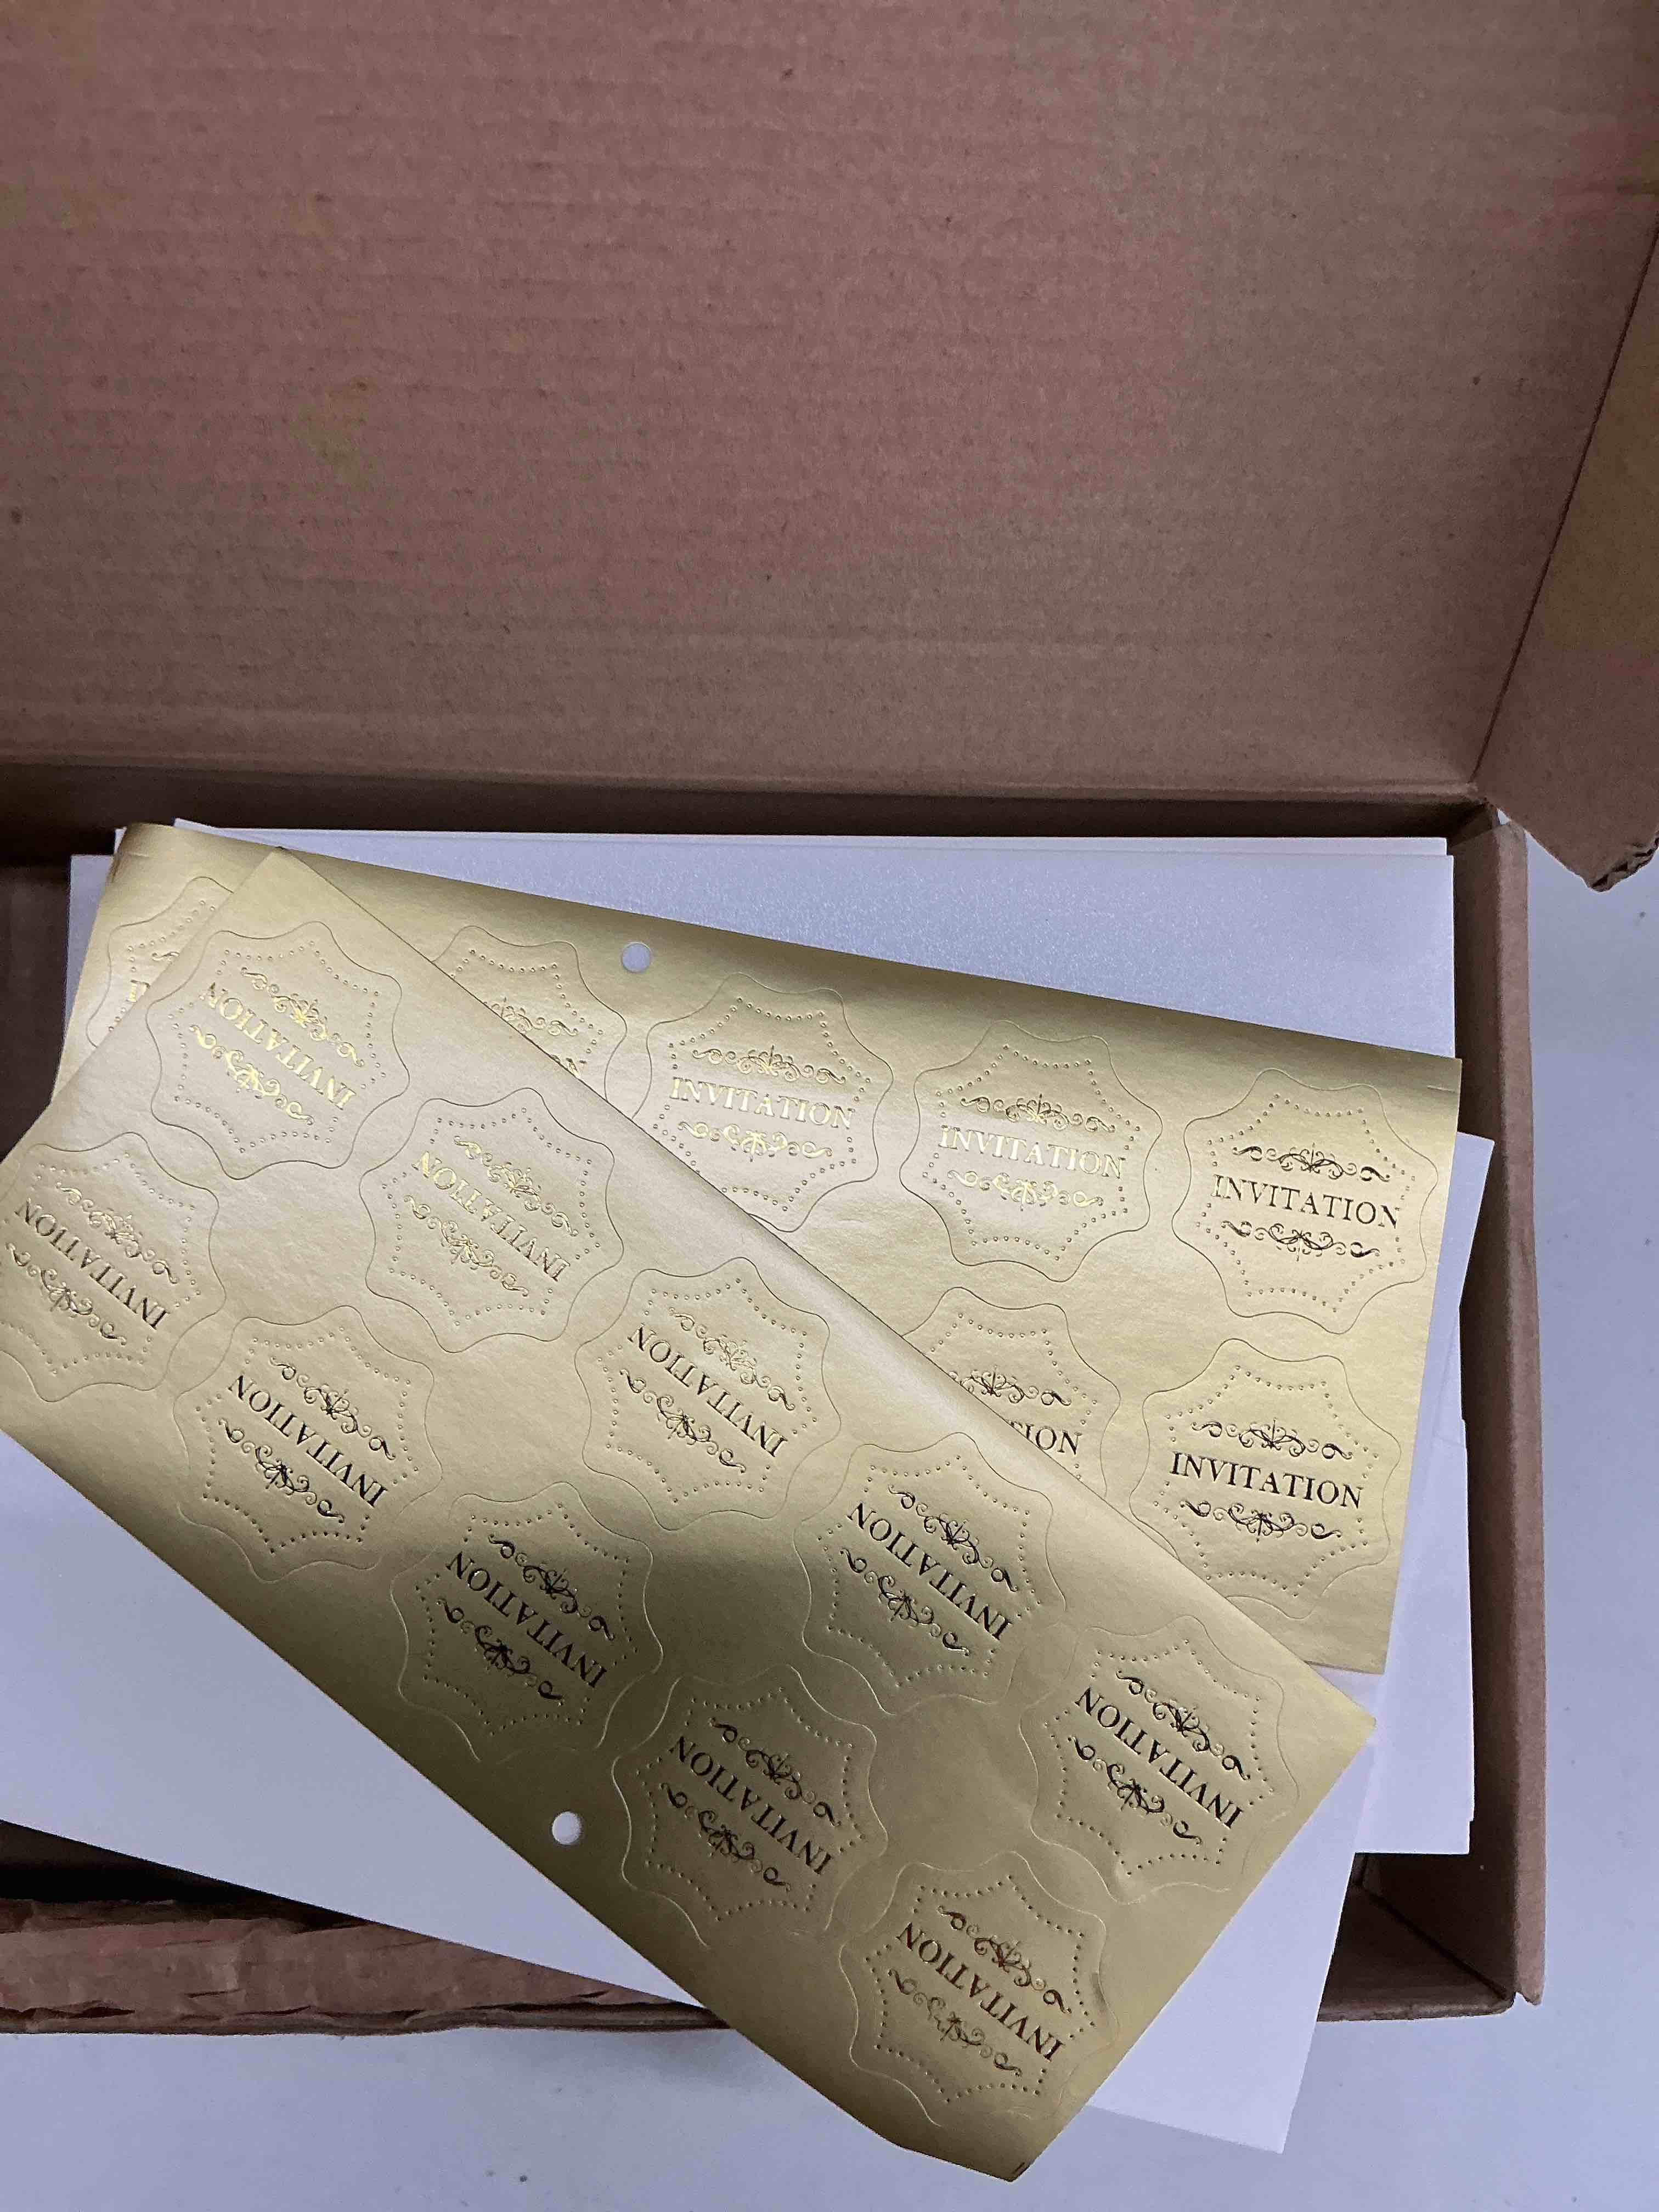 INVITATION
INVITATION
INVITATION
ION
INVITATION
INVITATION
INVITATION
INVITATION
INVITATION
INVITATION
INVITATION
INVITATION
INVITATION
INVITATION
INVITATION